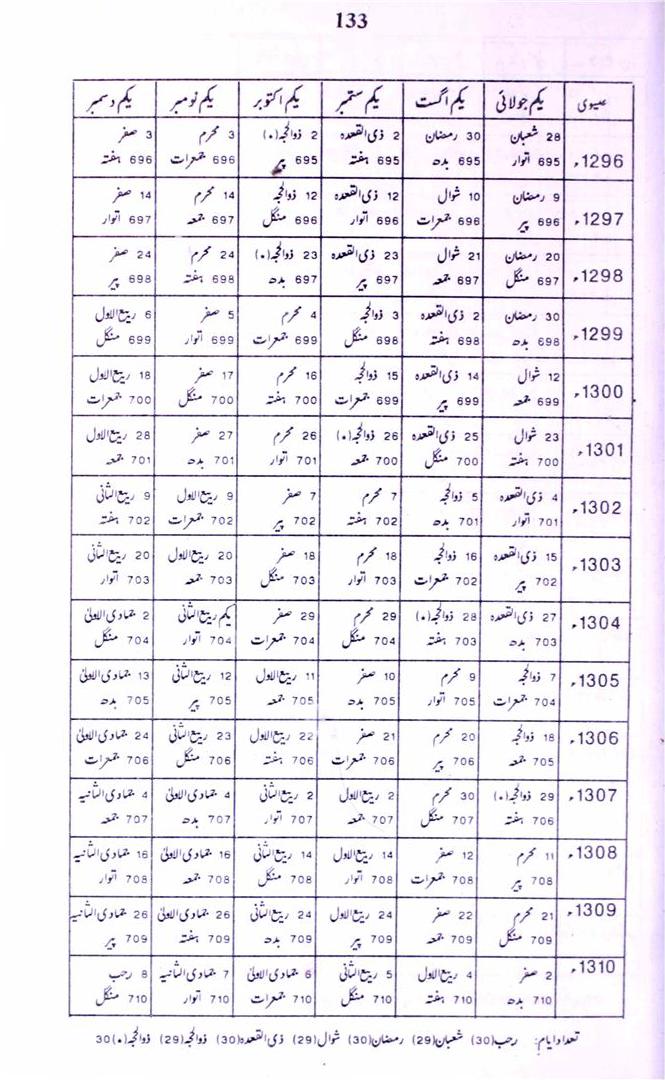 133
عیسوی یکم جولائی یکم اگست یکم ستمبر یکم اکتوبر یکم نومبر یکم دسمبر
1296ء 28 شعبان 30 رمضان 2 ذی القعدہ 2 ذوالحجہ (٠) 3 محرم 3 صفر
695 اتوار 695 بدھ 695 ہفتہ 695 پیر 696 جمعرات 696 ہفتہ
1297ء 9 رمضان 10 شوال 12 ذی القعدہ 12 ذوالحجہ 14 محرم 14 صفر
696 پیر 696 جمعرات 696 اتوار 696 منگل 697 جمعہ 697 اتوار
1298ء 20 رمضان 21 شوال 23 ذی القعدہ 23 ذوالحجہ (٠) 24 محرم 24 صفر
697 منگل 697 جمعہ 697 پیر 697 بدھ 698 ہفتہ 698 پیر
1299ء 30 رمضان 2 ذی القعدہ 3 ذوالحجہ 4 محرم 5 صفر 6 ربیع الاول
698 بدھ 698 ہفتہ 698 منگل 699 جمعرات 699 اتوار 699 منگل
1300ء 12 شوال 14 ذی القعدہ 15 ذوالحجہ 16 محرم 17 صفر 18 ربیع الاول
699 جمعہ 699 پیر 699 جمعرات 700 ہفتہ 700 منگل 700 جمعرات
1301ء 23 شوال 25 ذی القعدہ 26 ذوالحجہ (٠) 26 محرم 27 صفر 28 ربیع الاول
700 ہفتہ 700 منگل 700 جمعہ 701 اتوار 701 بدھ 701 جمعہ
1302ء 4 ذی القعدہ 5 ذوالحجہ 7 محرم 7 صفر 9 ربیع الاول 9 ربیع الثانی
701 اتوار 701 بدھ 702 ہفتہ 702 پیر 702 جمعرات 702 ہفتہ
1303ء 15 ذی القعدہ 16 ذوالحجہ 18 محرم 18 صفر 20 ربیع الاول 20 ربیع الثانی
702 پیر 702 جمعرات 703 اتوار 703 منگل 703 جمعہ 703 اتوار
1304ء 27 ذی القعدہ 28 ذوالحجہ (٠) 29 محرم 29 صفر یکم ربیع الثانی 2 جمادی الاولیٰ
703 بدھ 703 ہفتہ 704 منگل 704 جمعرات 704 اتوار 704 منگل
1305ء 7 ذوالحجہ 9 محرم 10 صفر 11 ربیع الاول 12 ربیع الثانی 13 جمادی الاولیٰ
704 جمعرات 705 اتوار 705 بدھ 705 جمعہ 705 پیر 705 بدھ
1306ء 18 ذوالحجہ 20 محرم 21 صفر 22 ربیع الاول 23 ربیع الثانی 24 جمادی الاولیٰ
705 جمعہ 706 پیر 706 جمعرات 706 ہفتہ 706 منگل 706 جمعرات
1307ء 29 ذوالحجہ (٠) 30 محرم 2 ربیع الاول 2 ربیع الثانی 4 جمادی الاولیٰ 4 جمادی الثانیہ
706 ہفتہ 707 منگل 707 جمعہ 707 اتوار 707 بدھ 707 جمعہ
1308ء 11 محرم 12 صفر 14 ربیع الاول 14 ربیع الثانی 16 جمادی الاولیٰ 16 جمادی الثانیہ
708 پیر 708 جمعرات 708 اتوار 708 منگل 708 جمعہ 708 اتوار
1309ء 21 محرم 22 صفر 24 ربیع الاول 24 ربیع الثانی 26 جمادی الاولیٰ 26 جمادی الثانیہ
709 منگل 709 جمعہ 709 پیر 709 بدھ 709 ہفتہ 709 پیر
1310ء 2 صفر 4 ربیع الاول 5 ربیع الثانی 6 جمادی الاولیٰ 7 جمادی الثانیہ 8 رجب
710 بدھ 710 ہفتہ 710 منگل 710 جمعرات 710 اتوار 710 منگل
تعداد ایام: رجب (30) شعبان (29) رمضان (30) شوال (29) ذی القعدہ (30) ذوالحجہ (29) ذوالحجہ (٠) 30